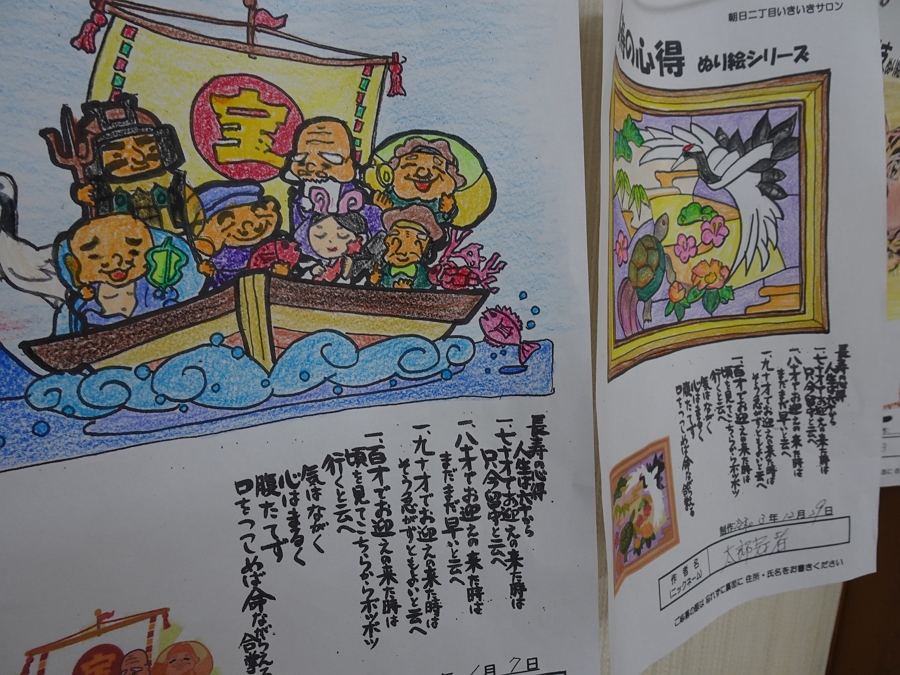 宝
長寿の心得
人生は七十から
一、七十才でお迎えの来た時は
只今留守と云へ
一、八十才でお迎えの来た時は
まだまだ早いと云へ
一、九十才でお迎えの来た時は
そう急がずともよいと云へ
一、百才でお迎えの来た時は
頃を見てこちらからボツボツ
行くと云へ
気はながく
心はまるく
腹たてず
口をつつしめば命ながらえる
月7日
朝日二丁目いきいきサロン
の心得 ぬり絵シリーズ
長寿の心得
人生は七十から
一、七十才でお迎えの来た時は
只今留守と云へ
一、八十才でお迎えの来た時は
まだまだ早いと云へ
一、九十才でお迎えの来た時は
そう急がずともよいと云へ
一、百才でお迎えの来た時は
頃を見てこちらからボツボツ
行くと云へ
気はながく
心はまるく
腹たてず
口をつつしめば命ながらえる
制作 令和3年12月29日
作者名
(ニックネーム)
ご応募の際は 忘れずに裏面に 住所・氏名をお書きください